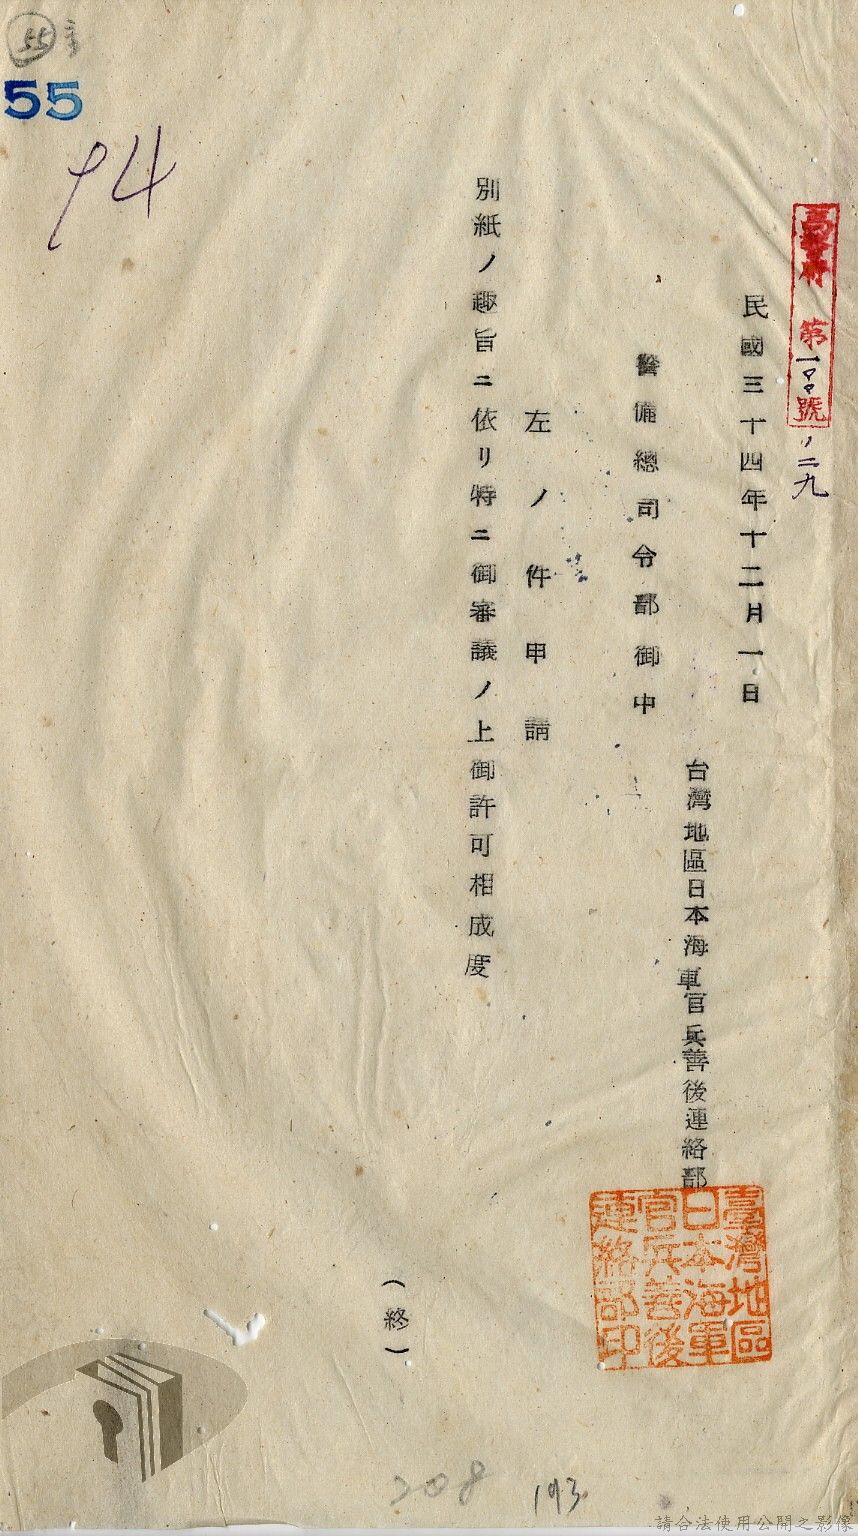 第一〇〇號ノ二九
民國三十四年十二月一日
台灣地區日本海軍官兵善後連絡部
警備總司令部御中
左ノ件申請
別紙ノ趣旨ニ依リ特ニ御審議ノ上御許可相成度
(終)
臺灣地區
日本海軍
官兵善後
連絡部印
55
55
94
208
193
請合法使用公開之影像